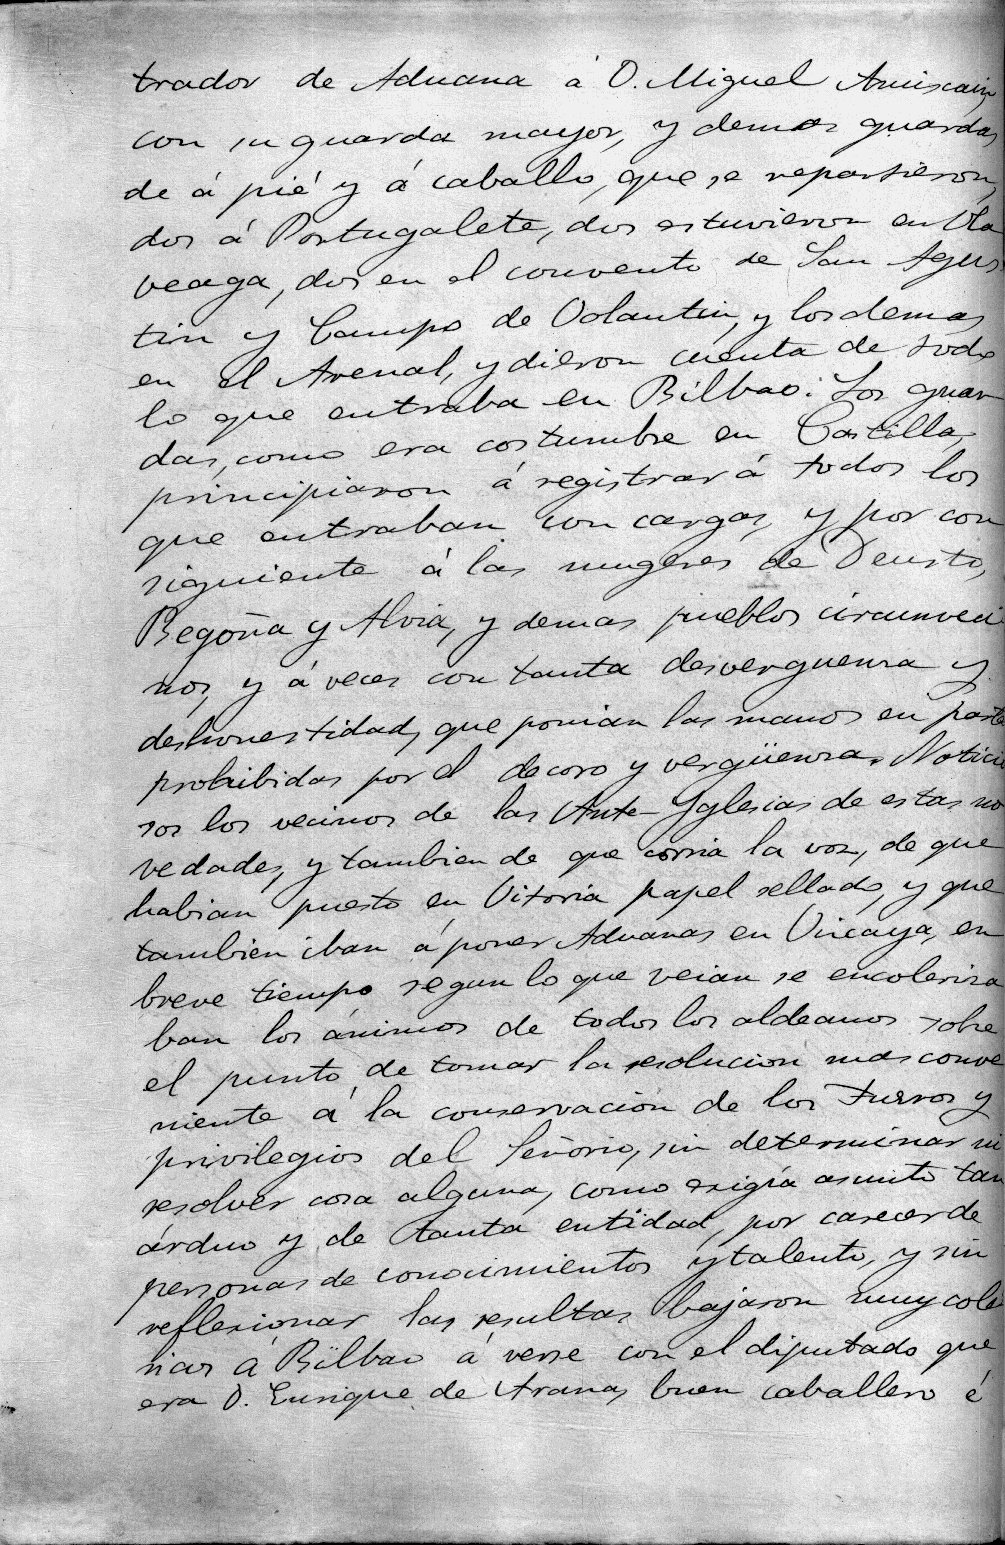 trador de Aduana á D. Miguel
con su guarda mayor, y demas guardas
de á pié y á caballo, que se repartieron,
dos á Portugalete, dos estuvieron en Ola
veaga, dos en el convento de San Agus
tin y Campo de Volantin, y los demas
en el Arenal, y dieron cuenta de todo
lo que entraba en Bilbao. Los guar
das, como era costumbre en Castilla,
principiaron á registrar á todos los
que entraban con cargas, y por con
siguiente á las mugeres de Deusto,
Begoña y Alvia, y demas pueblos circunveci
nos, y á veces con tanta desverguenza y
deshonestidad, que ponian las manos en parte
prohibidas por el decoro y vergüenza. Notici
sos los vecinos de las Ante-Yglesias de estas no
vedades, y tambien de que corria la voz, de que
habian puesto en Vitoria papel sellado, y que
tambien iban á poner Aduanas en Vizcaya, en
breve tiempo segun lo que veian se encoleriza
ban los ánimos de todos los aldeanos sobre
el punto de tomar la resolucion mas conve
niente á la conservacion de los Fueros y
privilegios del Señorio, sin determinar ni
resolver cosa alguna, como exigía asunto tan
árduo y de tanta entidad, por carecer de
personas de conocimientos y talento, y sin
reflexionar las resultas bajaron muy colé
ricas á Bilbao á verse con el diputado que
era D. Enrique de Arana, buen caballero é